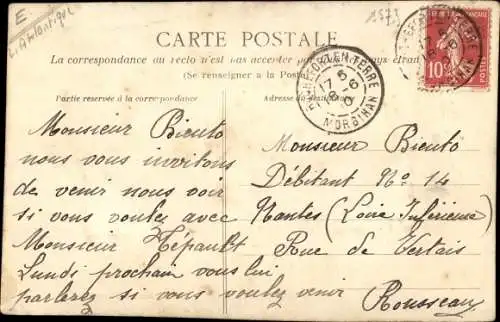 E
L'Atlantique
1573
CARTE POSTALE
La correspondance au recto n'est pas acceptée par les pays étran
(Se renseigner à la Poste)
Partie réservée à la correspondance
Adresse du destinataire
ROCHEFORT-EN-TERRE
17 5
18 -6
MORBIHAN
10
Monsieur Biento
nous vous invitons
de venir nous voir
si vous voulez avec
Monsieur Tépault
Lundi prochain vous lui
parlerez si vous voulez venir
Monsieur Biento
Débitant No 14
Nantes (Loire Inférieure)
Rue de Vertais
Rousseau